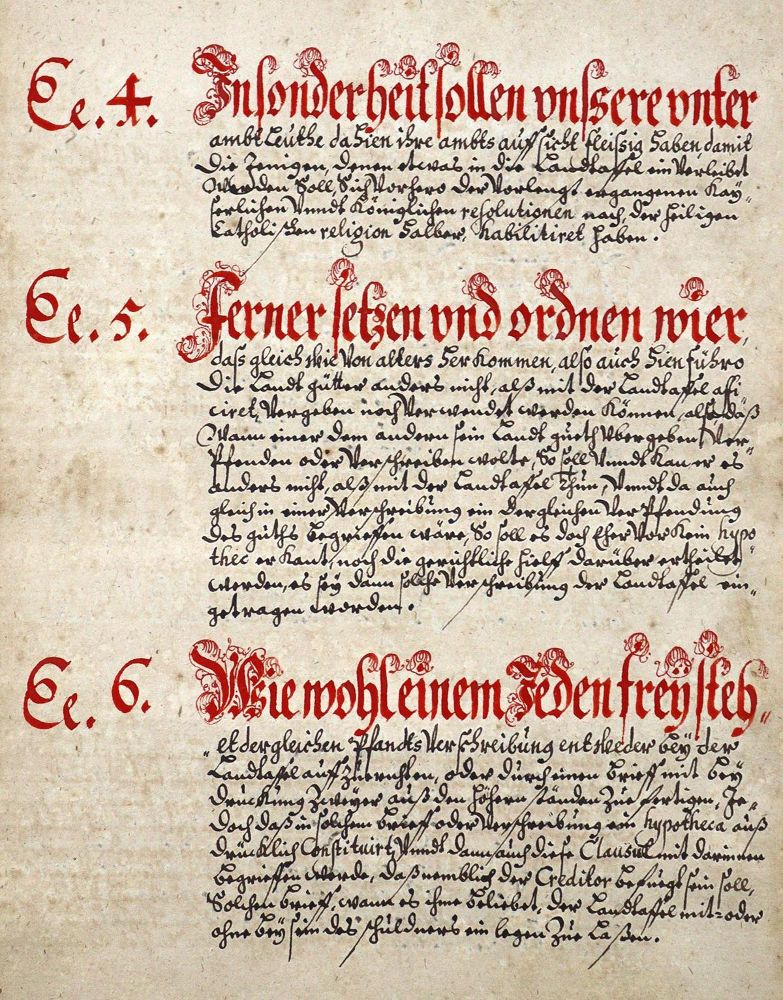 Ee. 4. Insonderheit sollen vnssere vnter
ambt Leuthe dahien ihre ambts auffsicht fleissig haben damit
Die Jenigen, denen etwas in die Landtaffel ein Verleibet
Werden Soll, Sich Vorhero der Vorlengst ergangenen Kaÿ„
serlichen Vnndt Königlichen resolutionen nach, der heiligen
Catholischen religion halber, habilitiret haben.
Ee. 5. Ferner setzen vnd ordnen wier,
dass gleich wie Von alters herkommen, also auch hienführo
Die Landt gütter anders nicht, alß mit der Landtaffel affi
ciret, Vergeben noch Verwendet werden können, also daß
Wann einer dem andern sein Landt gueth Vbergeben, Ver„
Pfenden oder Verschreiben wolte, So soll Vnndt kan er es
anders nicht, alß mit der Landtaffel thun, Vnndt da auch
gleich in einer Verschreibung ein dergleichen Ver Pfendung
des guths begrieffen wäre, So soll es doch Eher Vor Kein hypo
thec erkant, noch die gerichtliche hielff darüber ertheilet
werden, es seÿ dann solche Verschreibung der Landtaffel ein„
getragen worden.
Ee. 6. Wie wohl einem Jeden freÿ steh„
et dergleichen Pfandts Verschreibung entweder beÿ der
Landtaffel auff Zuerichten, oder durch einen brieff mit beÿ
drückung Zweÿer auß den höhern ständen Zue fertigen, Je„
doch daß in solchem brieff oder Verschreibung ein hypotheca auß
drücklich Constituirt, Vnndt dann auch diese Clausul mit darinnen
begrieffen werde, daß nemblich der Creditor befuegt sein soll,
Solchen brieff, wann es ihme beliebet, der Landtaffel mit= oder
ohne beÿ sein des schuldners ein legen Zue Laßen.